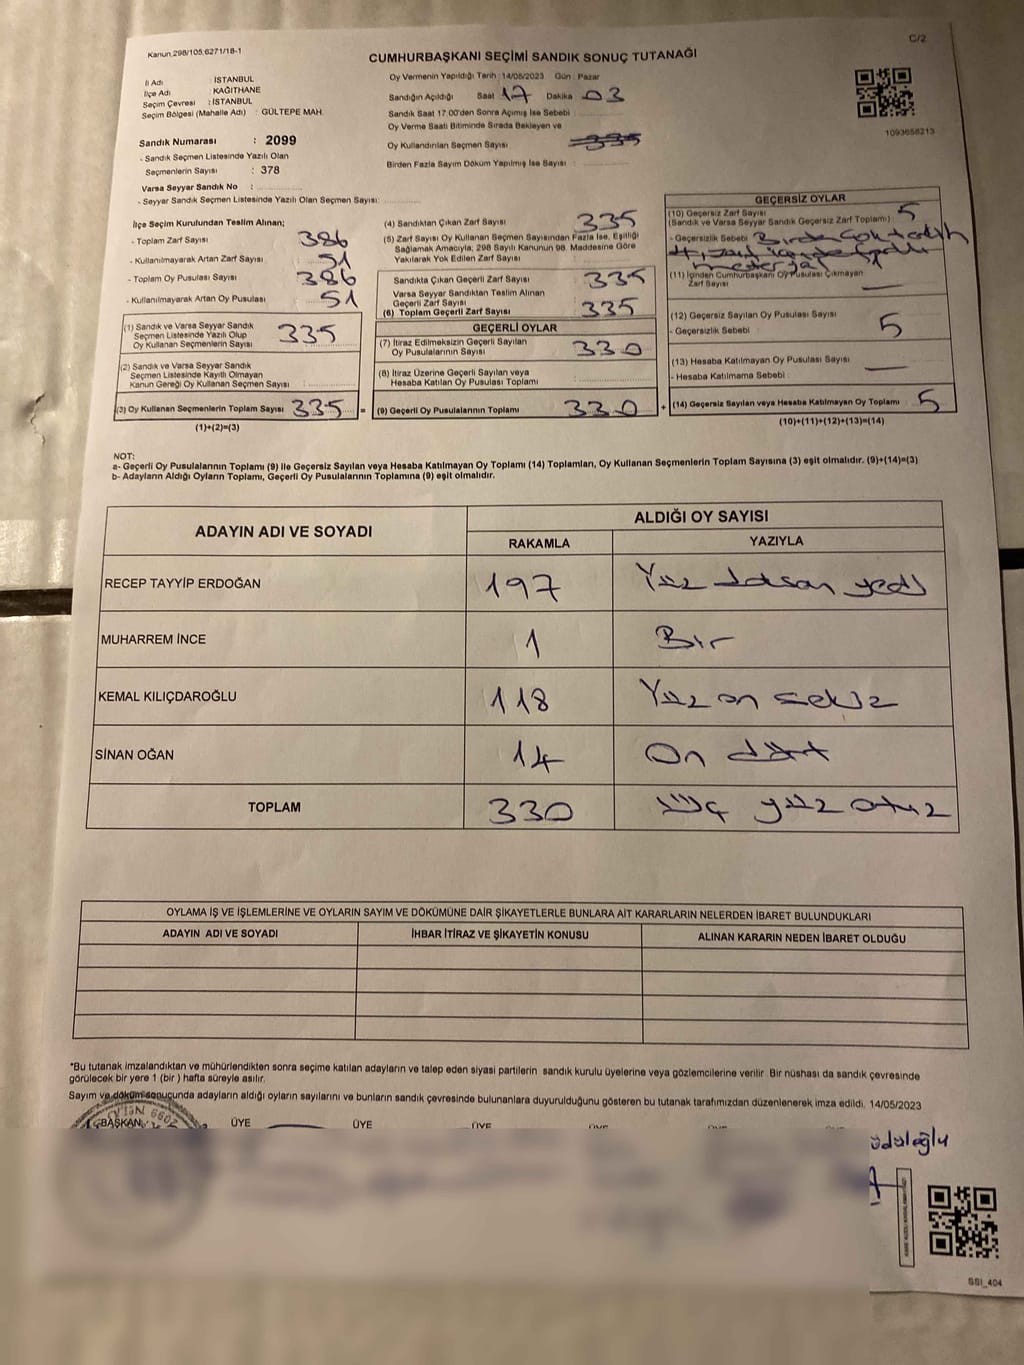 Kanun.298/105,6271/18-1
C/2
CUMHURBAŞKANI SEÇİMİ SANDIK SONUÇ TUTANAĞI
İl Adı : İSTANBUL
İlçe Adı : KAĞITHANE
Seçim Çevresi : İSTANBUL
Seçim Bölgesi (Mahalle Adı) : GÜLTEPE MAH.
Sandık Numarası : 2099
- Sandık Seçmen Listesinde Yazılı Olan
Seçmenlerin Sayısı : 378
Varsa Seyyar Sandık No :
- Seyyar Sandık Seçmen Listesinde Yazılı Olan Seçmen Sayısı:
Oy Vermenin Yapıldığı Tarih : 14/05/2023 Gün : Pazar
Sandığın Açıldığı Saat 17 Dakika 03
Sandık Saat 17.00'den Sonra Açımış İse Sebebi :
Oy Verme Saati Bitiminde Sırada Bekleyen ve
Oy Kullandırılan Seçmen Sayısı 335
Birden Fazla Sayım Döküm Yapılmış İse Sayısı :
1093656213
İlçe Seçim Kurulundan Teslim Alınan;
- Toplam Zarf Sayısı 386
- Kullanılmayarak Artan Zarf Sayısı : 51
- Toplam Oy Pusulası Sayısı 386
- Kullanılmayarak Artan Oy Pusulası : 51
(1) Sandık ve Varsa Seyyar Sandık
Seçmen Listesinde Yazılı Olup
Oy Kullanan Seçmenlerin Sayısı 335
(2) Sandık ve Varsa Seyyar Sandık
Seçmen Listesinde Kayıtlı Olmayan
Kanun Gereği Oy Kullanan Seçmen Sayısı :
(3) Oy Kullanan Seçmenlerin Toplam Sayısı 335 =
(1)+(2)=(3)
(4) Sandıktan Çıkan Zarf Sayısı 335
(5) Zarf Sayısı Oy Kullanan Seçmen Sayısından Fazla İse, Eşitliği
Sağlamak Amacıyla; 298 Sayılı Kanunun 98. Maddesine Göre
Yakılarak Yok Edilen Zarf Sayısı
Sandıkta Çıkan Geçerli Zarf Sayısı 335
Varsa Seyyar Sandıktan Teslim Alınan
Geçerli Zarf Sayısı
(6) Toplam Geçerli Zarf Sayısı 335
GEÇERLİ OYLAR
(7) İtiraz Edilmeksizin Geçerli Sayılan
Oy Pusulalarının Sayısı 330
(8) İtiraz Üzerine Geçerli Sayılan veya
Hesaba Katılan Oy Pusulası Toplamı
(9) Geçerli Oy Pusulalarının Toplamı 330 +
GEÇERSİZ OYLAR
(10) Geçersiz Zarf Sayısı 5
(Sandık ve Varsa Seyyar Sandık Geçersiz Zarf Toplamı)
- Geçersizlik Sebebi Birden çok tercih
(11) İçinden Cumhurbaşkanı Oy Pusulası Çıkmayan
Zarf Sayısı —
(12) Geçersiz Sayılan Oy Pusulası Sayısı 5
- Geçersizlik Sebebi :
(13) Hesaba Katılmayan Oy Pusulası Sayısı —
- Hesaba Katılmama Sebebi :
(14) Geçersiz Sayılan veya Hesaba Katılmayan Oy Toplamı 5
(10)+(11)+(12)+(13)=(14)
NOT:
a- Geçerli Oy Pusulalarının Toplamı (9) İle Geçersiz Sayılan veya Hesaba Katılmayan Oy Toplamı (14) Toplamları, Oy Kullanan Seçmenlerin Toplam Sayısına (3) eşit olmalıdır. (9)+(14)=(3)
b- Adayların Aldığı Oyların Toplamı, Geçerli Oy Pusulalarının Toplamına (9) eşit olmalıdır.
ADAYIN ADI VE SOYADI ALDIĞI OY SAYISI
RAKAMLA YAZIYLA
RECEP TAYYİP ERDOĞAN 197 Yüz doksan yedi
MUHARREM İNCE 1 Bir
KEMAL KILIÇDAROĞLU 118 Yüz on sekiz
SİNAN OĞAN 14 On dört
TOPLAM 330 Üç yüz otuz
OYLAMA İŞ VE İŞLEMLERİNE VE OYLARIN SAYIM VE DÖKÜMÜNE DAİR ŞİKAYETLERLE BUNLARA AİT KARARLARIN NELERDEN İBARET BULUNDUKLARI
ADAYIN ADI VE SOYADI İHBAR İTİRAZ VE ŞİKAYETİN KONUSU ALINAN KARARIN NEDEN İBARET OLDUĞU
*Bu tutanak imzalandıktan ve mühürlendikten sonra seçime katılan adayların ve talep eden siyasi partilerin sandık kurulu üyelerine veya gözlemcilerine verilir. Bir nüshası da sandık çevresinde
görülecek bir yere 1 (bir) hafta süreyle asılır.
Sayım ve döküm sonucunda adayların aldığı oyların sayılarını ve bunların sandık çevresinde bulunanlara duyurulduğunu gösteren bu tutanak tarafımızdan düzenlenerek imza edildi. 14/05/2023
BAŞKAN ÜYE ÜYE ÜYE
SSI_404